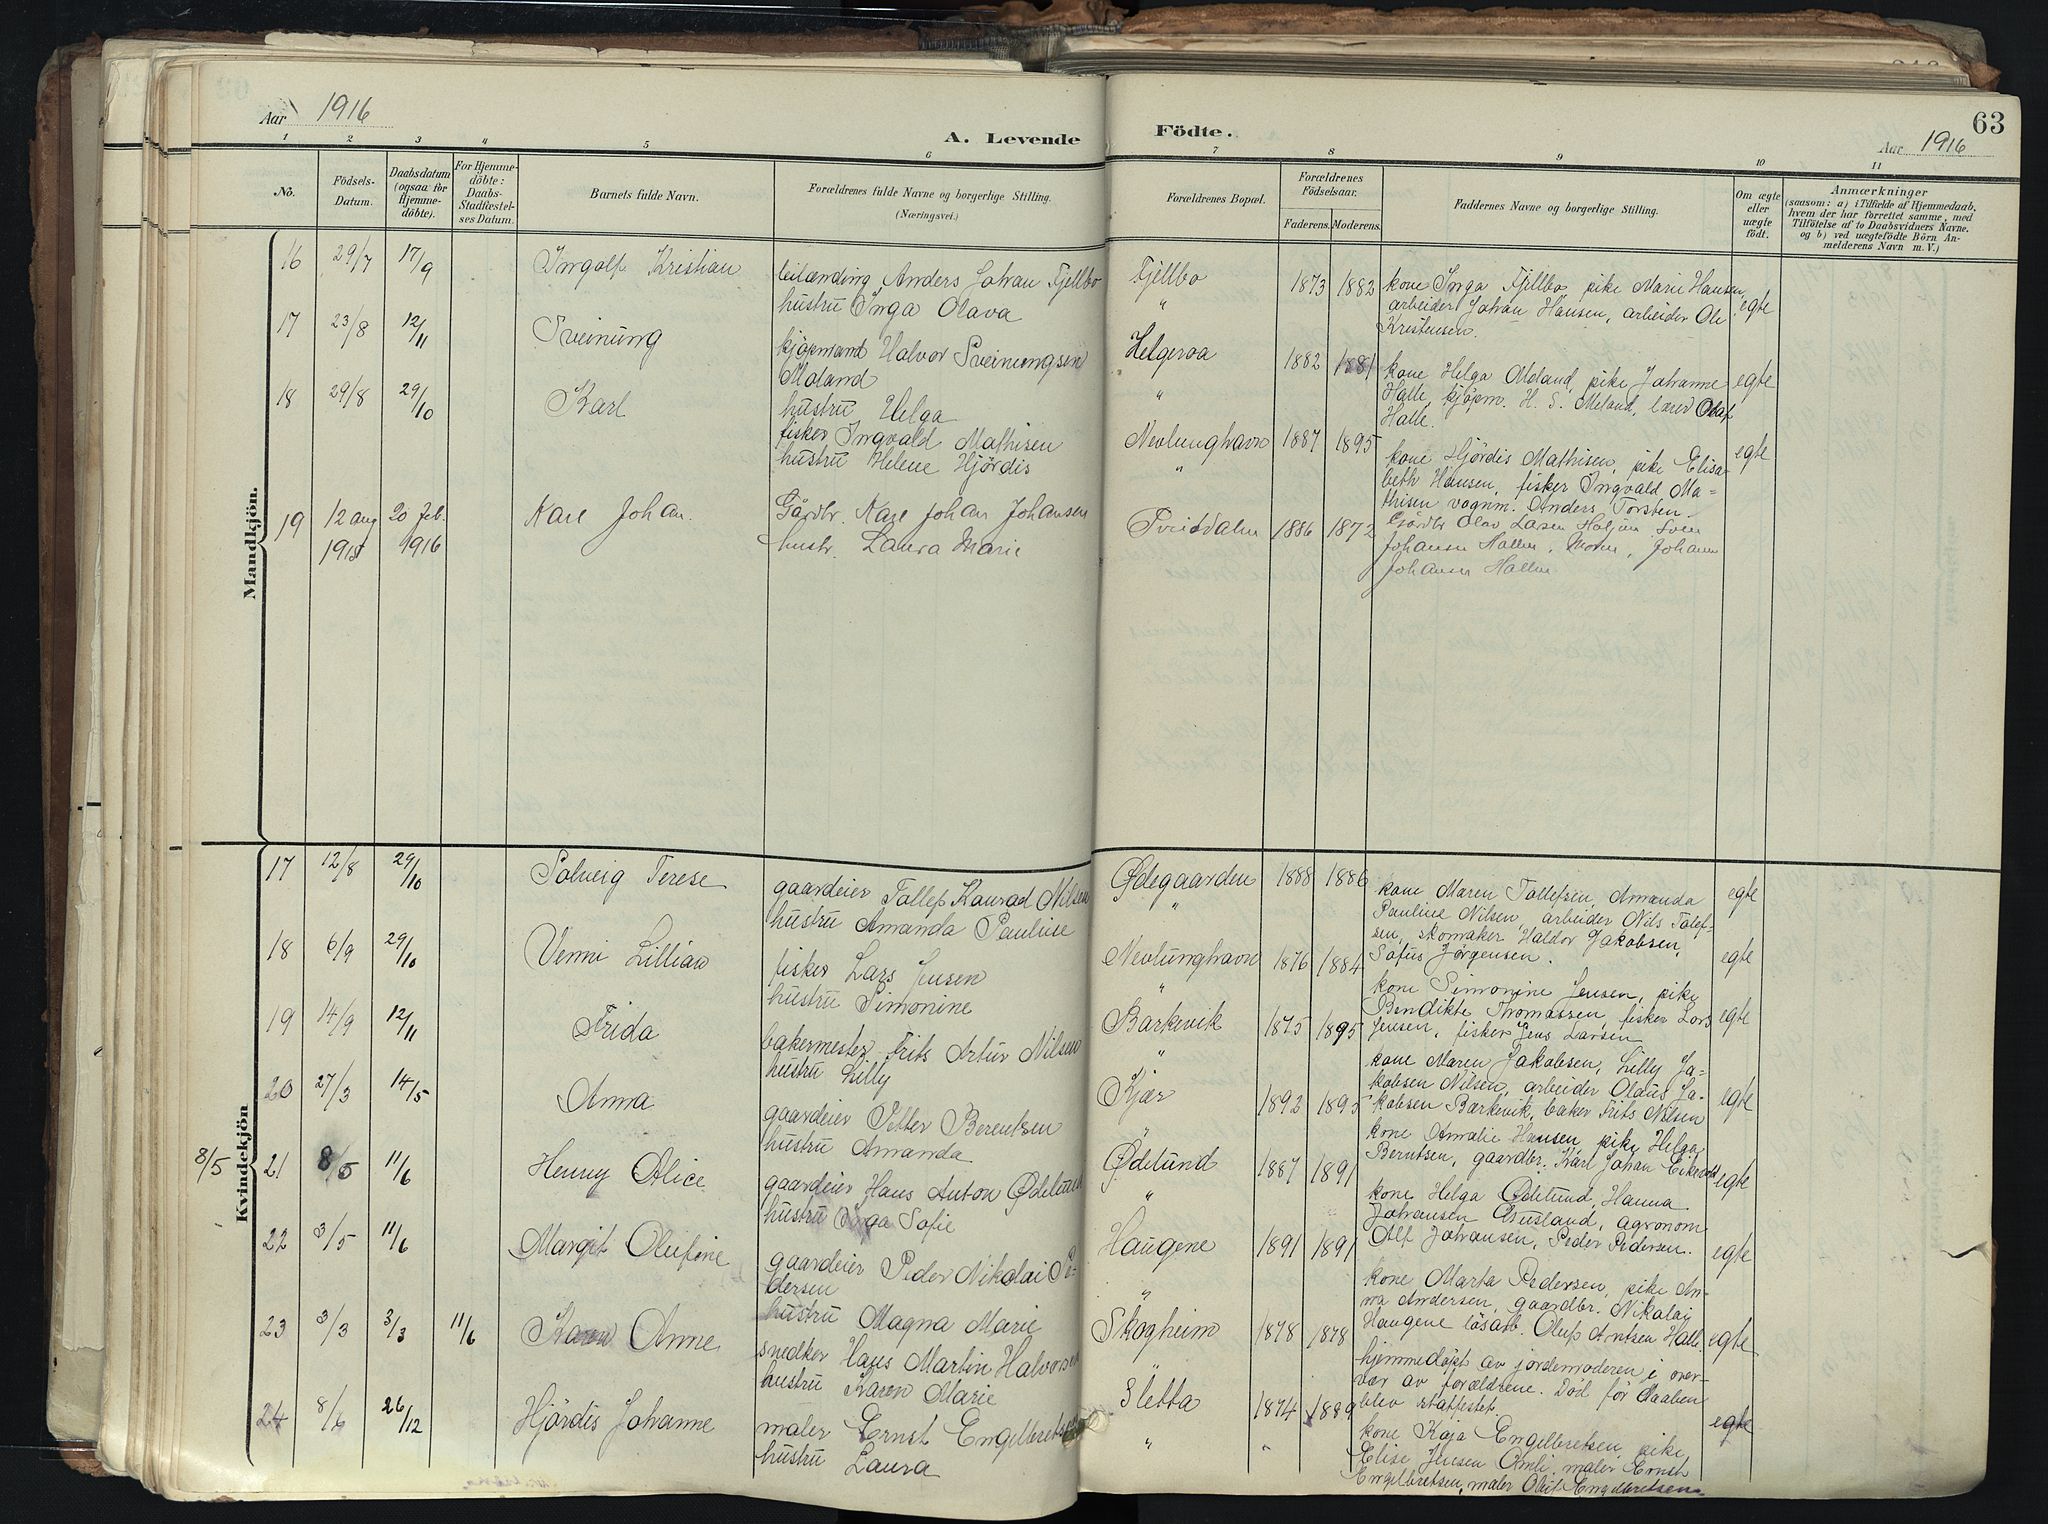 Aar 1916
A. Levende
Födte.
63
Aar 1916
1 2 3 4 5 6 7 8 9 10 11
No.
Födsels-Datum.
Daabsdatum (ogsaa for Hjemme-döbte).
For Hjemme-döbte: Daabs-Stadfæstel-ses Datum.
Barnets fulde Navn.
Forældrenes fulde Navne og borgerlige Stilling. (Næringsvei.)
Forældrenes Bopæl.
Forældrenes Födselsaar.
Faderens. Moderens.
Faddernes Navne og borgerlige Stilling.
Om ægte eller uægte födt.
Anmærkninger
(saasom: a) i Tilfælde af Hjemmedaab,
hvem der har forrettet samme, med
Tilföielse af to Daabsvidners Navne,
og b) ved uægtefödte Börn An-
melderens Navn m. V.)
Mandkjön.
16 29/7 17/9 Ingolf Kristian
leilænding Anders Johan Fjellbo
hustru Inga Olava
Fjellbo 1873 1882
"
kone Inga Fjellbo, pike Marie Hansen,
arbeider Johan Hansen, arbeider Ole
Kristensen.
egte
17 23/8 12/11 Sveinung
kjøpmand Halvor Sveinungsen
Moland
hustru Helga
Helgeroa 1882 1881
"
kone Helga Moland, pike Johanne
Halle, kjöpm. H. S. Moland, lærer Olaf
Halle.
egte
18 29/8 29/10 Karl
fisker Ingvald Mathisen
hustru Helene Hjördis
Nevlunghavn 1887 1895
"
kone Hjördis Mathisen, pike Elisa-
beth Hansen, fisker Ingvald Ma=
thisen vognm. Anders Torsten.
egte
19 12 aug 1915 20 feb. 1916 Karl Johan.
Gårdbr. Karl Johan Johansen
hustr. Laura Marie
1886 1872
Gårdbr Olav Larsen
Johansen Hallen, Johan
Johansen Hallen
Kvindekjön
17 12/8 29/10 Solveig Terese
gaardeier Tollef Konrad Nilsen
hustru Amanda Pauline
Ødegaarden 1888 1886
"
kone Maren Tollefsen, Amanda
Pauline Nilsen, arbeider Nils Tolef-
sen, skomaker Haldor Jakobsen,
Sofus Jörgensen.
egte
18 6/9 29/10 Venni Lillian
fisker Lars Jensen
hustru Simonine
Nevlunghavn 1876 1884
"
kone Simonine Jensen, pike
Bendikte Thomassen, fisker Lars
Jensen, fisker Jens Larsen
egte
19 14/9 12/11 Frida
bakermester Frits Artur Nilsen
hustru Lilly
Barkevik 1875 1895
"
kone Maren Jakobsen, Lilly Ja-
kobsen Nilsen, arbeider Olaus Ja-
kobsen Barkevik, baker Frits Nilsen
egte
20 27/3 14/5 Anna
gaardeier Petter Berentsen
hustru Amanda
Kjær 1892 1895
"
kone Amalie Hansen, pike Helga
Berntsen, gaardbr. Karl Johan
egte
8/5 21 8/5 11/6 Henny Alice
gaardeier Hans Anton Ødelund
hustru Inga Sofie
Ødelund 1887 1891
"
kone Helga Ødelund, Hanna
Johansen Gusland, agronom
Alf Johansen, Peder Pedersen.
egte
22 3/5 11/6 Margit Olufine
gaardeier Peder Nikolai Pe-
dersen
hustru Magna Marie
Haugene 1891 1891
"
kone Marta Pedersen, pike An-
na Andersen, gaardbr. Nikolai
Haugene lösarb. Oluf Antsen Halle
egte
23 3/3 3/3 11/6 Karen Anne
snedker Hans Martin Halvorsen
hustru Karen Marie
Skogheim 1878 1878
hjemmedöpt av jordemoderen i over-
vær av forældrene. Död för daaben
blev stadfestet.
egte
24 8/6 26/12 Hjördis Johanne
maler Ernst Engelbretsen
hustru Laura
Sletta 1874 1889
" "
kone Kaja Engelbretsen, pike
Elise Jensen Omli, maler Ernst
Engelbretsen, maler Engelbretsen
egte